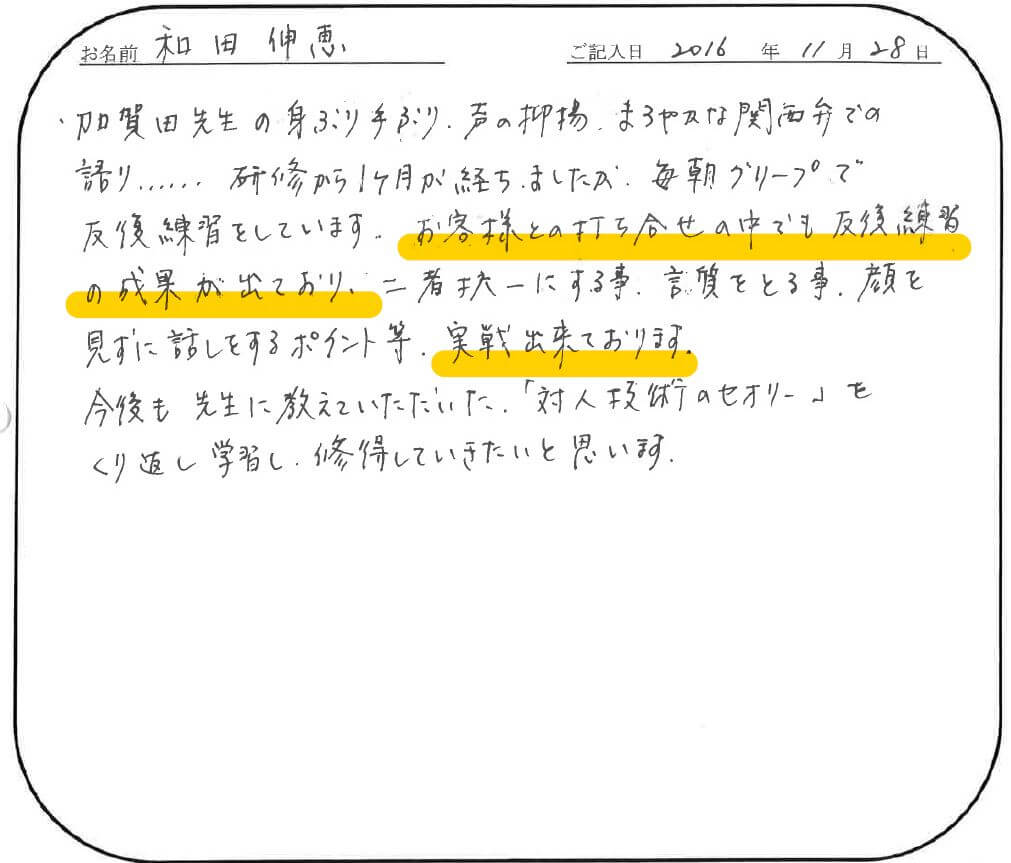 お名前 和田伸恵 ご記入日 2016 年 11 月 28 日
・加賀田先生の身ぶり手ぶり、声の抑揚、まろやかな関西弁での
語り…… 研修から1ヶ月が経ちましたが、毎朝グループで
反後練習をしています。お客様との打ち合せの中でも反後練習
の成果が出ており、二者択一にする事、言質をとる事、顔を
見ずに話しをするポイント等、実戦出来ております。
今後も先生に教えていただいた、「対人技術のセオリー」を
くり返し学習し、修得していきたいと思います。